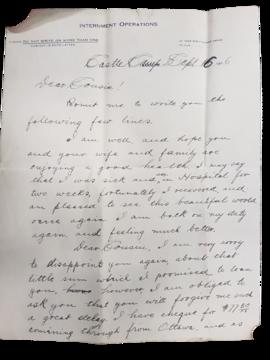 INTERNMENT OPERATIONS
DO NOT WRITE ON MORE THAN ONE
Castle Camp Sept. 6
Dear Cousin!
Permit me to write you the
following few lines.
I am well and hope you
and your wife and family are
enjoying a good health. I may say
that I was sick and in Hospital for
two weeks, fortunately I recovered, and
am pleased to see this beautiful world
once again. I am back on my duty
again and feeling much better.
Dear Cousin, I am very sorry
to disappoint you again about that
little sum which I promised to loan
you, however, I am obliged to
ask you that you will forgive me and
a great delay. I have cheque for
comining through from Ottawa, and as